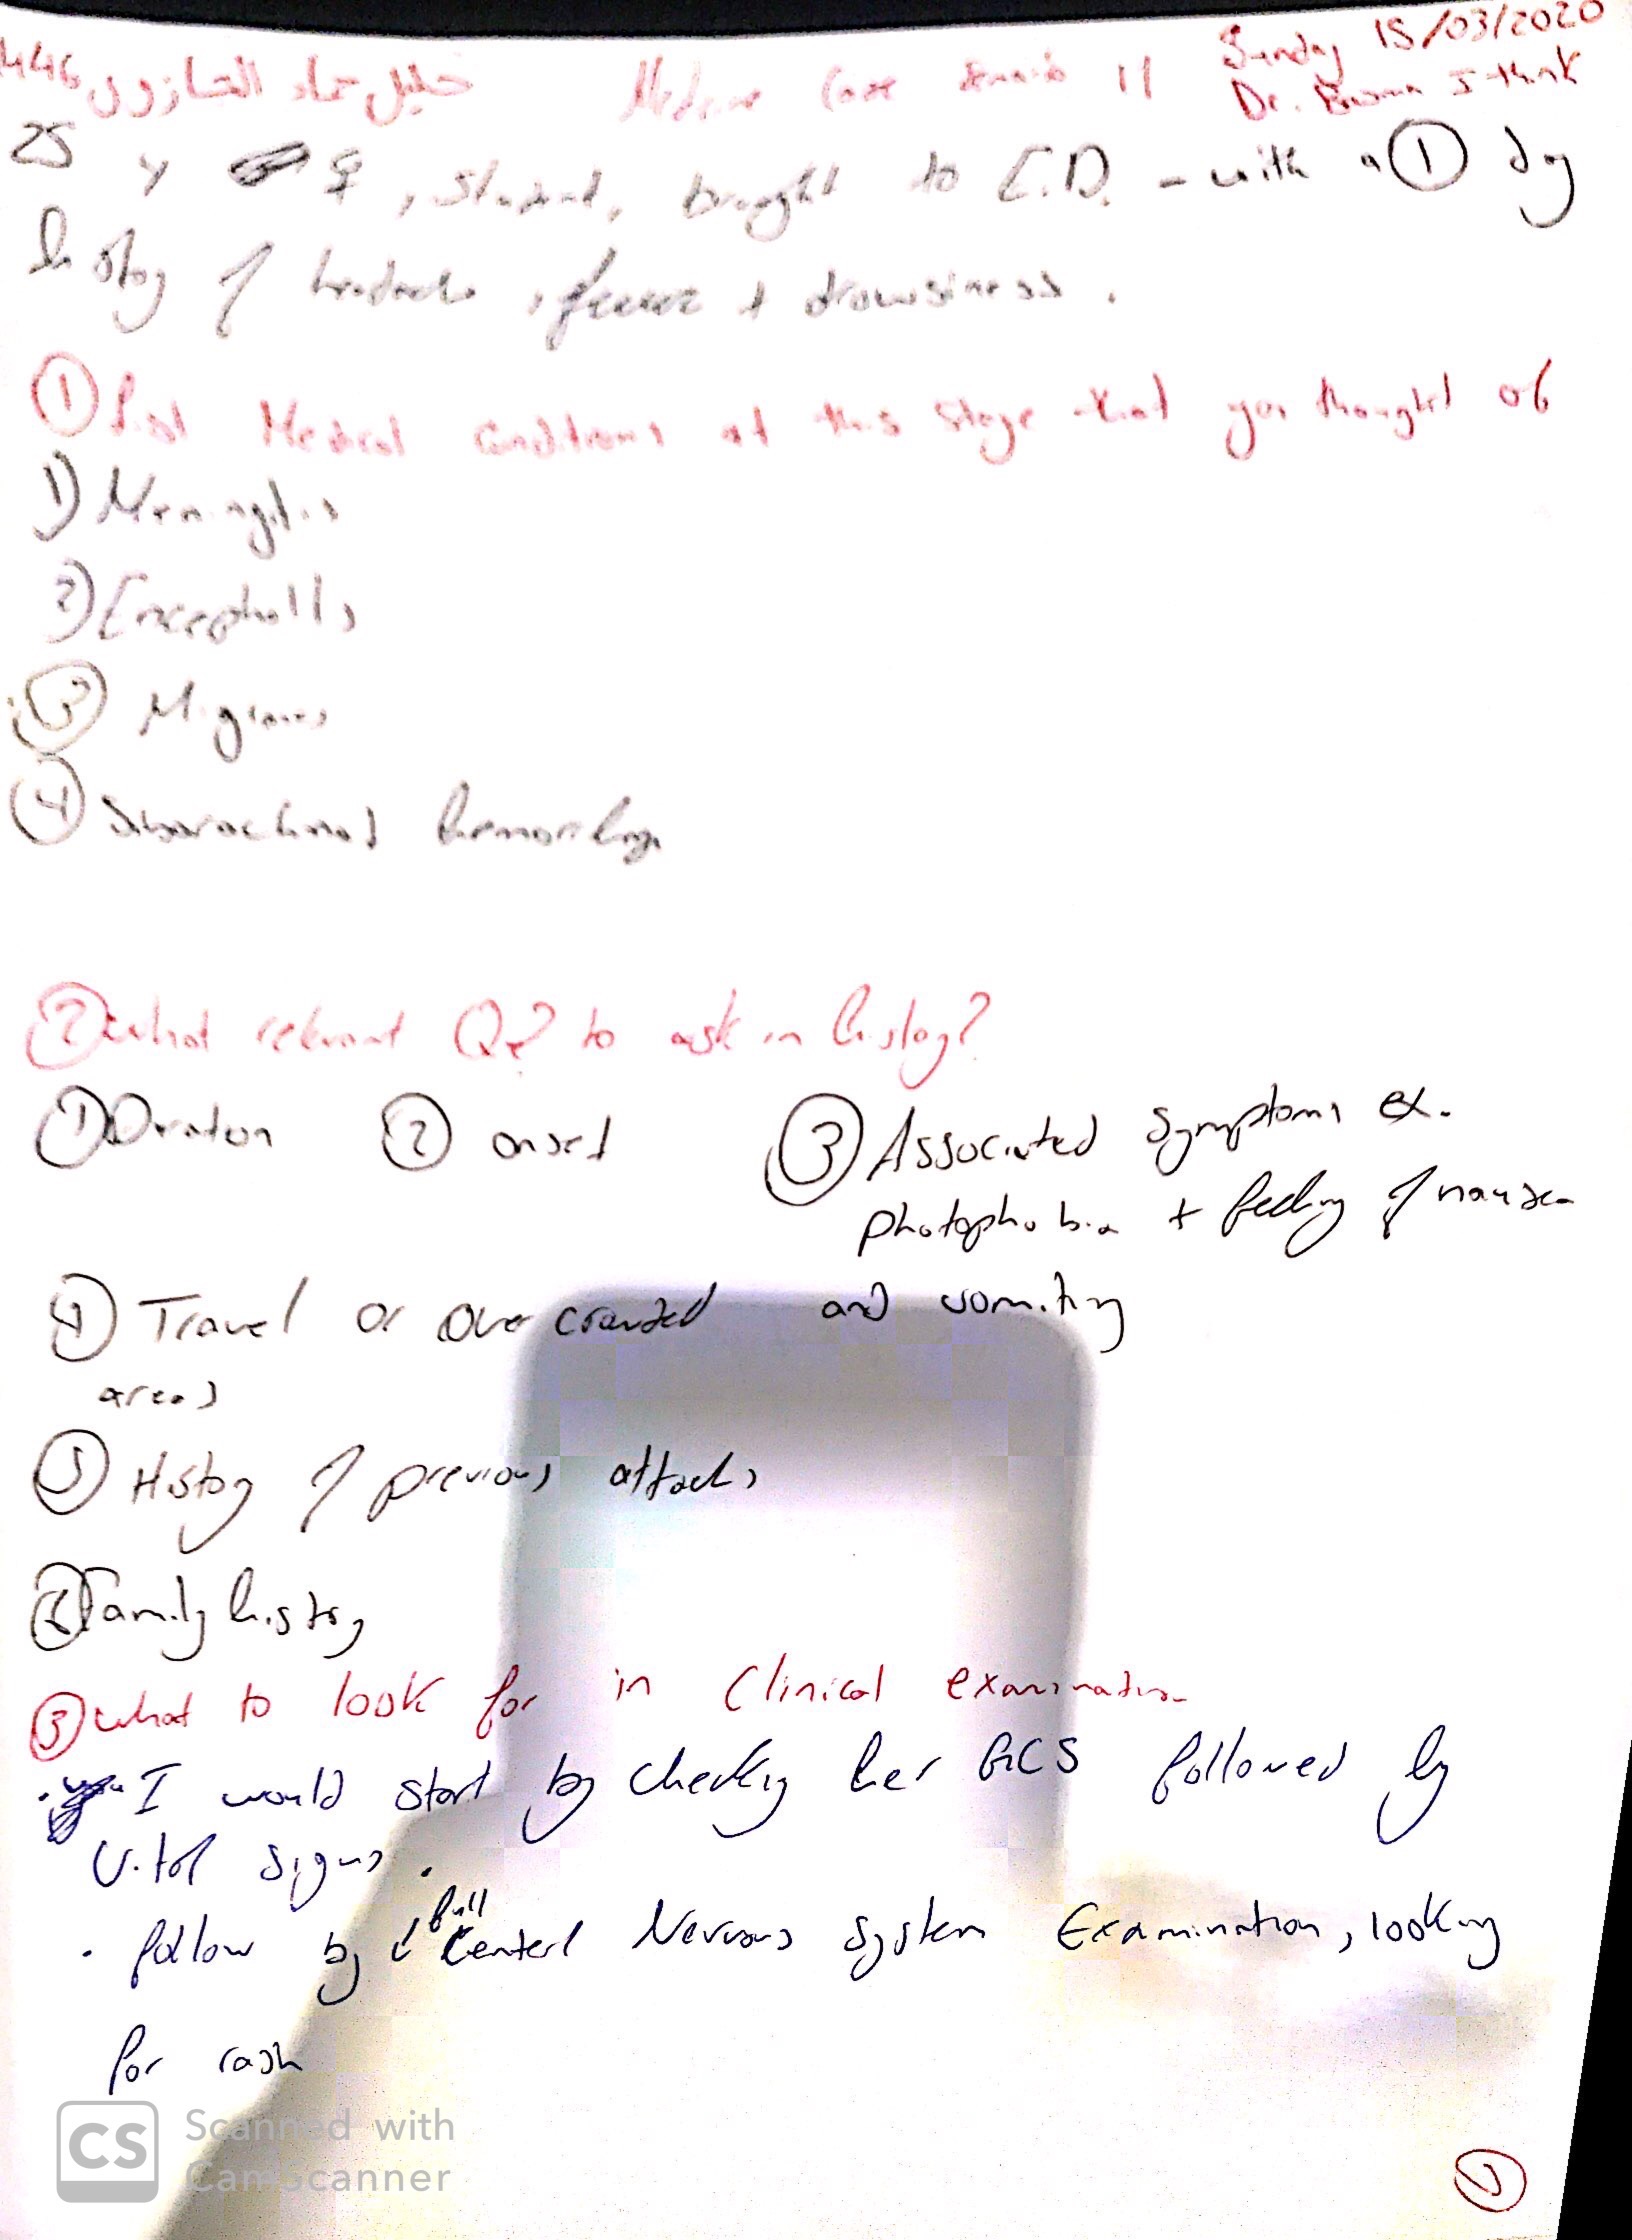 Sunday 15/03/2020
446 خليل حماد Medicine Case 11 Dr. I think
25 y ♀, student, brought to E.D. - with a ① day
history of headache, fever + drowsiness.
① list Medical conditions at this stage that you thought of
1) Meningitis
2) Encephalitis
③ Migraines
④ Subarachnoid hemorrhage
② what relevant Q? to ask in history?
① Duration ② onset ③ Associated symptoms ex.
photophobia + feeling of nausea
and vomiting
④ Travel or over crowded
areas
⑤ History of previous attacks
⑥ Family history
③ what to look for in Clinical examination
· I would start by checking her GCS followed by
Vital signs.
· follow by ↓ full Centerl Nervous system Examination, looking
for rash
CS Scanned with
CamScanner
①